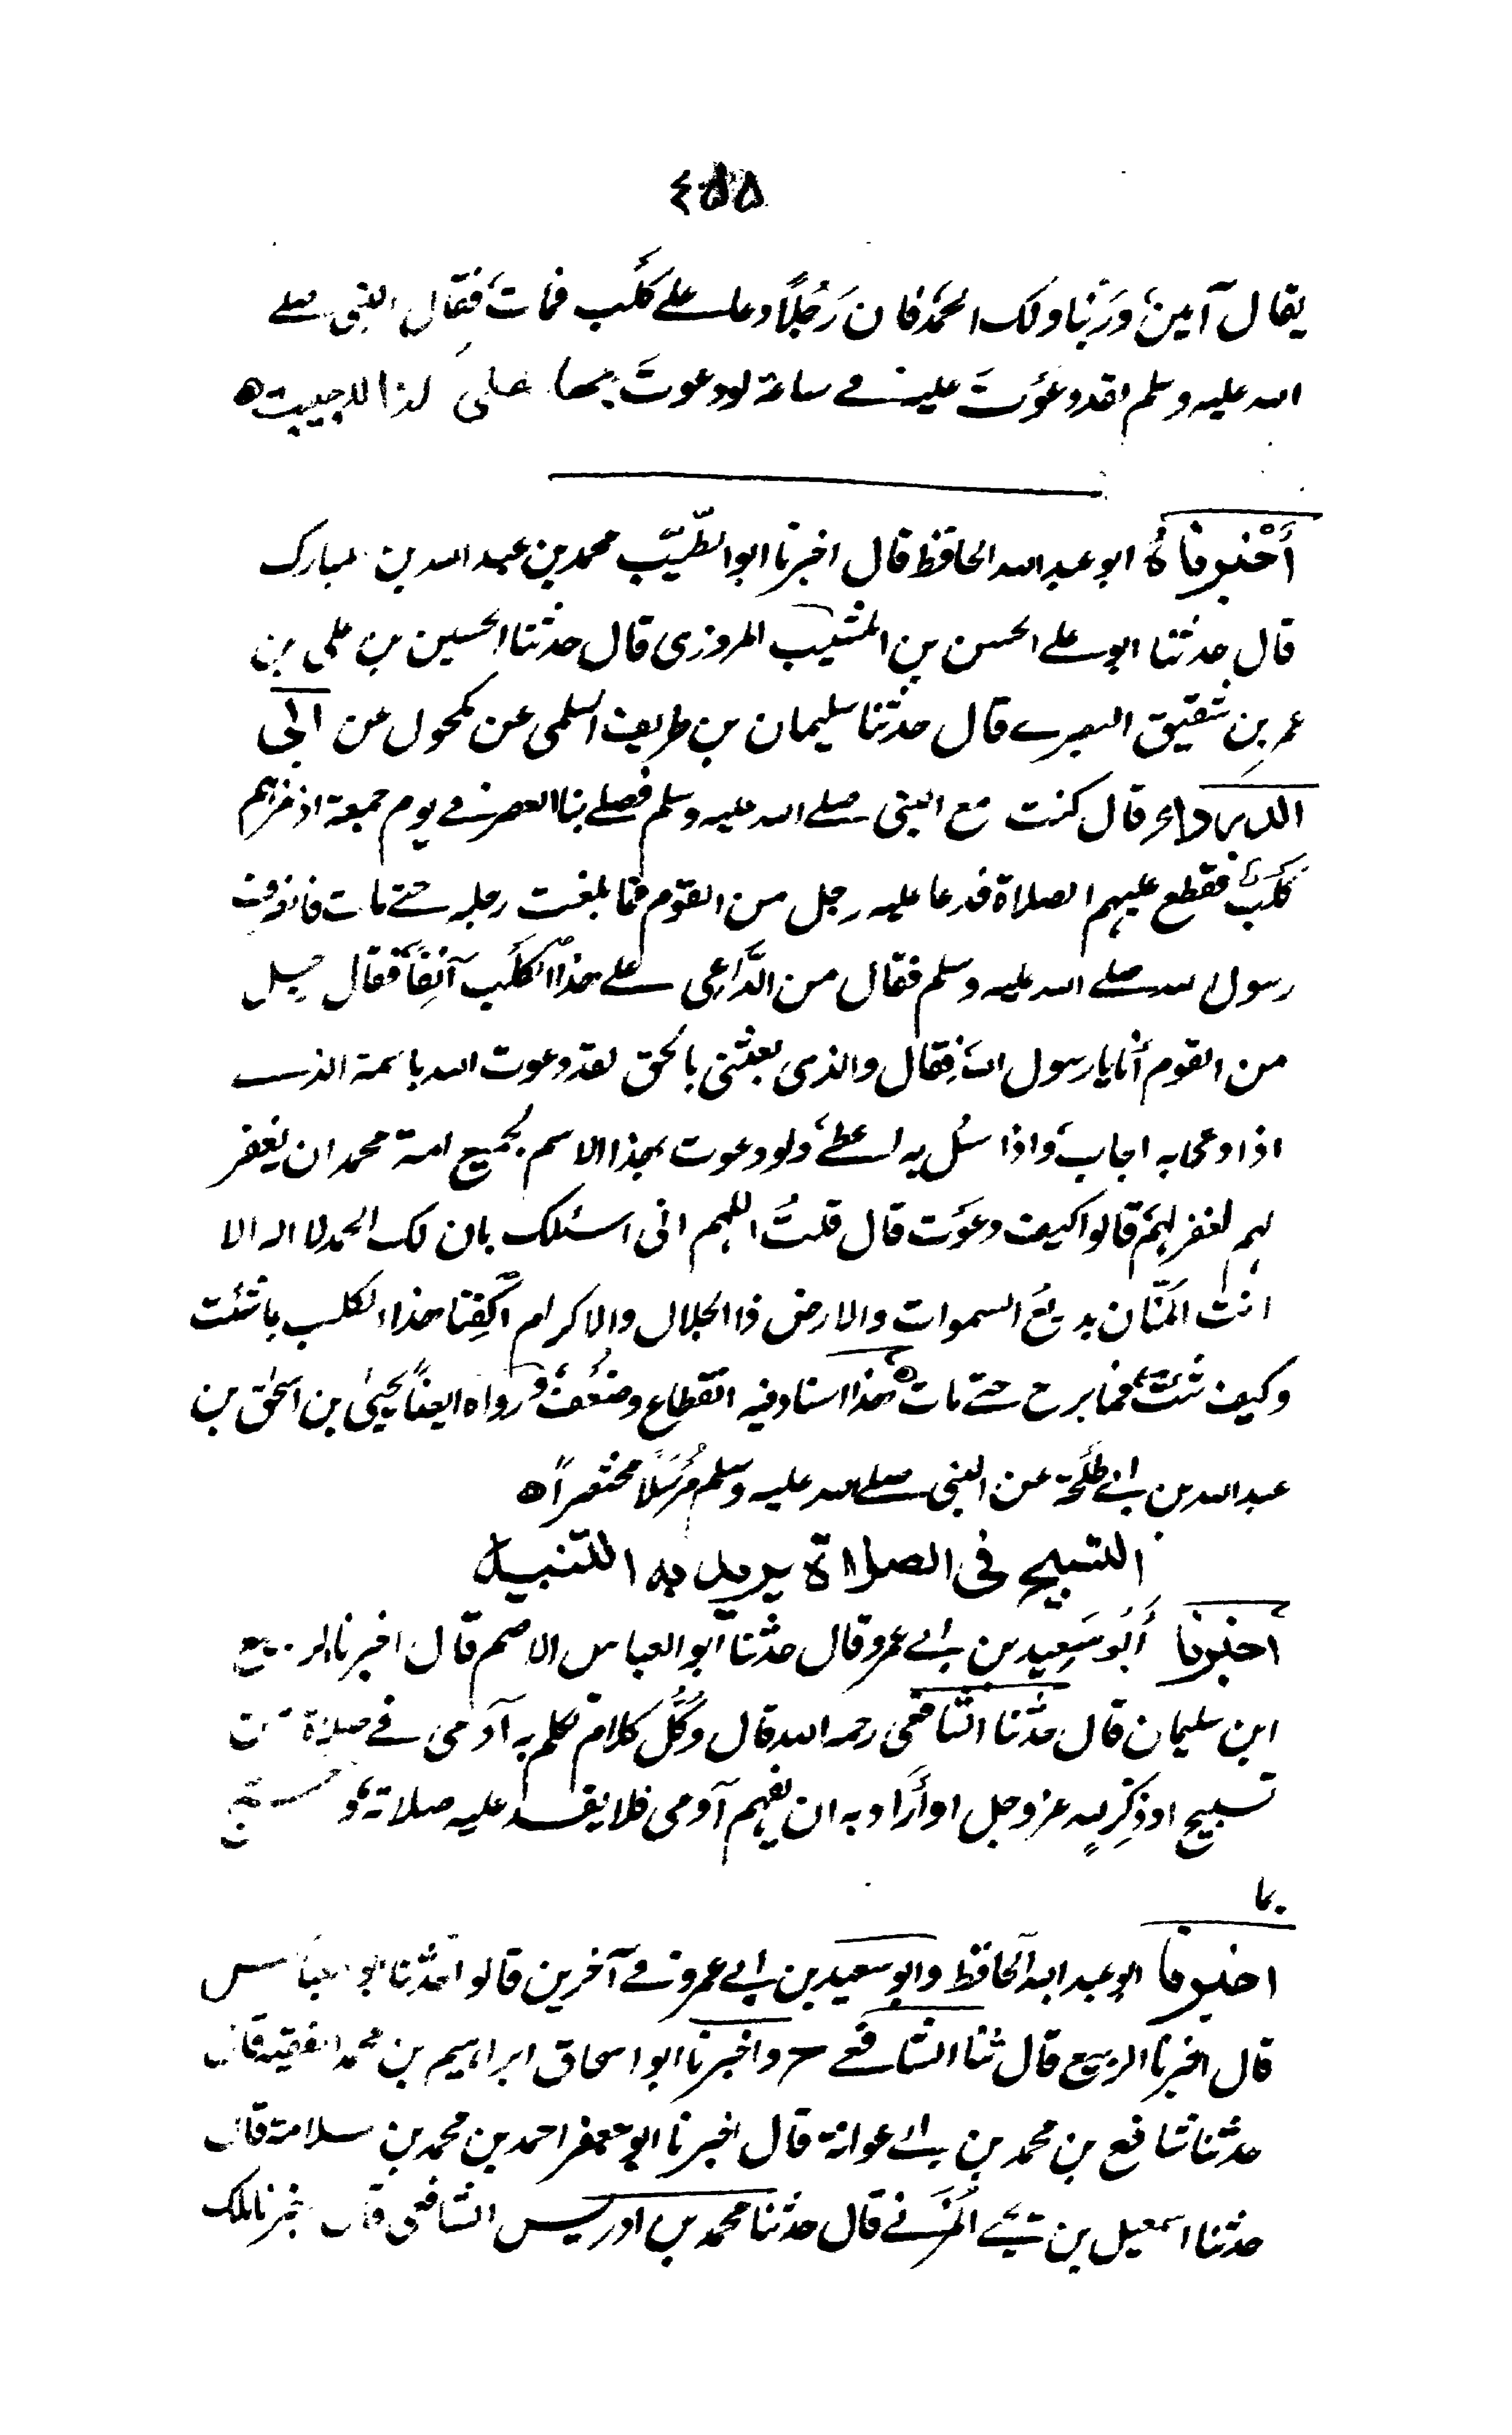 ٤٥٥
يقال آمين وَربّنا ولك الحمدُ فان رَجُلاً دعا على كَلب فمات فقال النبى صلى
الله عليه وسلم لقد دعَوتَ عليه فى ساعة لو دعوتَ بها على لذا لاجيبت ه
أَخْبرناهُ ابو عبد الله الحافظ قال اخبرنا ابو الطّيّب محمد بن عبد الله بن المبارك
قال حدثنا ابو على الحسن بن المسّيب المروزى قال حدثنا الحسين بن على بن
عمر بن شقيق البصرى قال حدثنا سليمان بن طريف السلمى عن مكحول عن ابى
الدرداء قال كنت مع النبى صلى الله عليه وسلم فصلى بنا العصر فى يوم جمعة اذ مرّبهم
كَلب فقطع عليهم الصلاة فدعا عليه رجل من القوم فما بلغت رجله حتى مات فانصرف
رسول الله صلى الله عليه وسلم فقال من الدَّاعِى على هذا الكَلب آنِفًا فقال رجل
من القوم أنا يا رسول الله فقال والذى بعثنى بالحق لقد دعوت الله باسمه الذى
اذا دعى به اجاب واذا سُئل به اعطى ولو دعوت بهذا الاسم لجميع امة محمد ان يغفر
لهم لغفر لهم قالوا كيف دعَوت قال قلتُ اللهم انى اسئلك بان لك الحمد لا اله الا
انت المَنّان بديعُ السموات والارض ذا الجلال والاكرام اكْفِنا هذا الكلب بما شئت
وكيف شئتَ فما برح حتى مات ه هذا اسناد فيه انقطاع وضَعُف ورواه ايضاً يحيىٰ بن اسحٰق بن
عبد الله بن ابى طَلحة عن النبى صلى الله عليه وسلم مُرسَلاً مختصراً ه
التسبيح فى الصلاة يريد به التنبيه
اخبرنا أَبُو سَعِيد بن ابى عمرو قال حدثنا ابو العباس الاصم قال اخبرنا الربيع
ابن سليمان قال حدثنا الشافعى رحمه الله قال وكُلّ كلام تكلم به آدمى فى صلاة من
تسبيح او ذِكرٍ لله عز وجل او أَرَاد به ان يفهم آدمى فلا يفسد عليه صلاته و
بما
اخبرنا ابو عبد الله الحافظ وابو سعيد بن ابى عمرو فى آخرين قالوا حدثنا ابو العباس
قال اخبرنا الربيع قال ثنا الشافعى ح واخبرنا ابو اسحاق ابراهيم بن محمد الفقيه قال
حدثنا شافع بن محمد بن ابى عوانة قال اخبرنا ابو جعفر احمد بن محمد بن سلامة قال
حدثنا اسمعيل بن يحيى المُزَنى قال حدثنا محمد بن ادريس الشافعى قال اخبرنا مالك